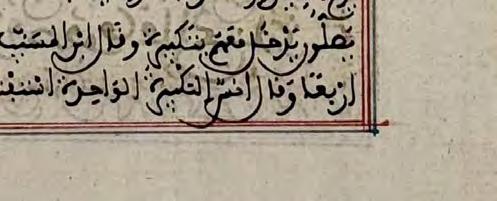 يصلون يدخل معهم بتكبيرة وقال ابن المسيب
اربعا وقال انس التكبيرة الواحدة استفت